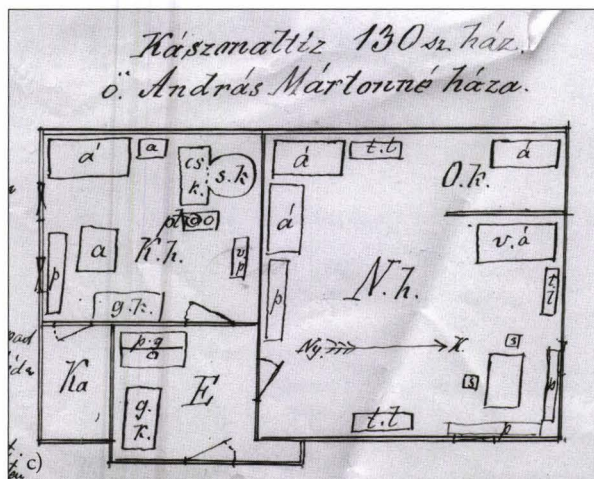 Kászonaltiz 130 sz. ház.
ö. András Mártonné háza.
á a cs. k. s.k
á t.t á
O.k.
á
v.á
a K.h. v p
p
p
N.h.
t l
g.k.
Ny. K.
s
s
p.g
Ka
E
g. k.
t.t
p
p
c)